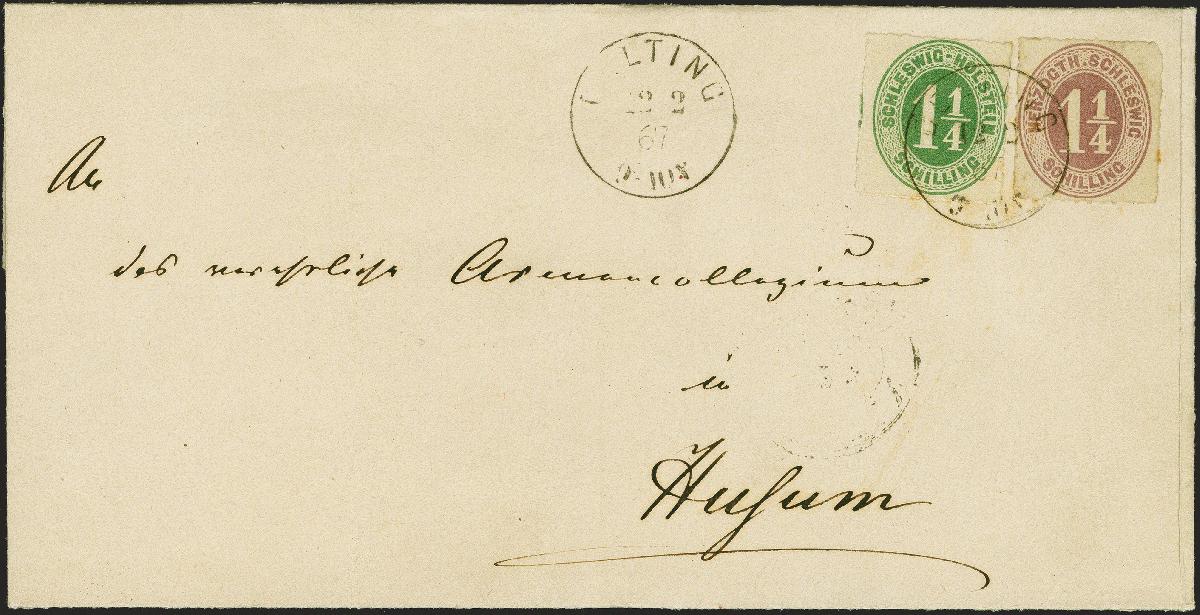 LTING
12 2
67
SCHLESWIG-HOLSTEIN
1 1/4
SCHILLING
HERZOGTH. SCHLESWIG
1 1/4
SCHILLING
An
das verehrliche Armencollegium
in
Husum